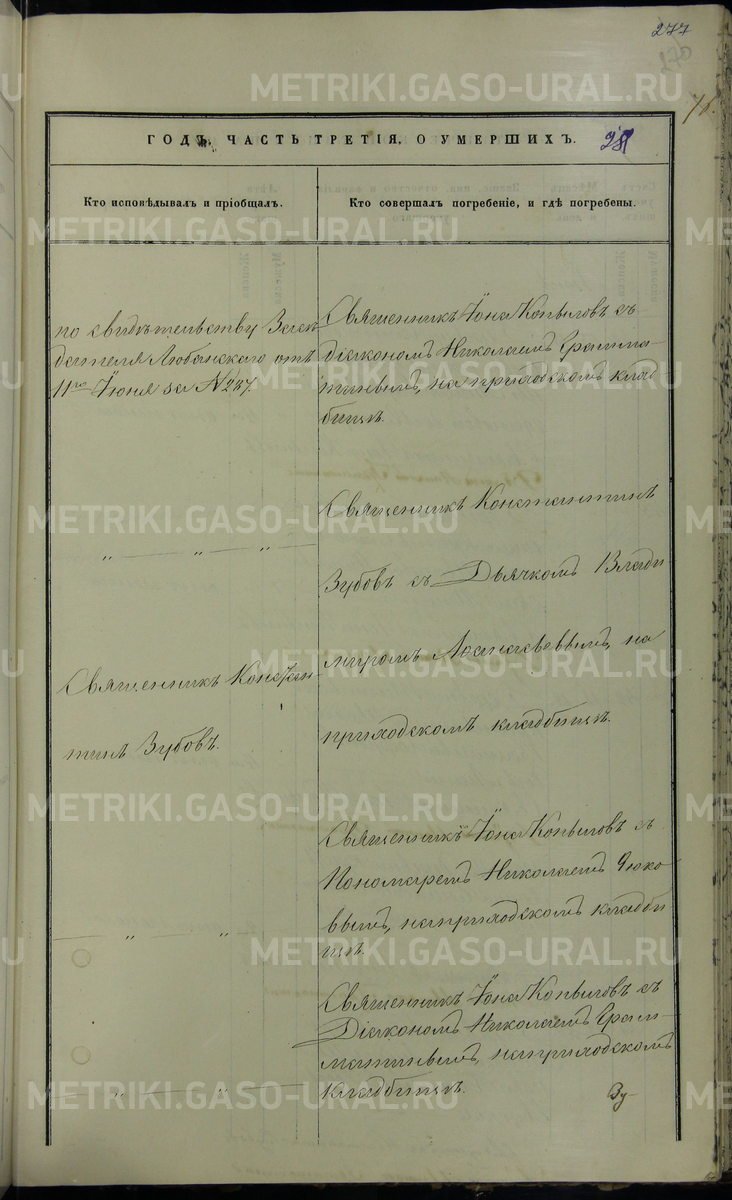 277
71.
ГОДЪ, ЧАСТЬ ТРЕТІЯ, О УМЕРШИХЪ.
Кто исповѣдывалъ и пріобщалъ.
Кто совершалъ погребеніе, и гдѣ погребены.
по свидѣтельству
дателя Любанскаго отъ
11го Іюня за № 227.
Священникъ Іона Копыловъ съ
діакономъ Николаемъ Грамма-
тинымъ, на приходскомъ клад-
бищѣ.
Священникъ Константинъ
Зубовъ съ Дьячкомъ Влади
миромъ на
приходскомъ кладбищѣ.
Священникъ Констан-
тинъ Зубовъ.
Священникъ Іона Копыловъ съ
Пономаремъ Николаемъ
вымъ, на приходскомъ кладби
щѣ.
Священникъ Іона Копыловъ съ
Діакономъ Николаемъ Грам-
матинымъ, на приходскомъ
кладбищѣ.
METRIKI.GASO-URAL.RU